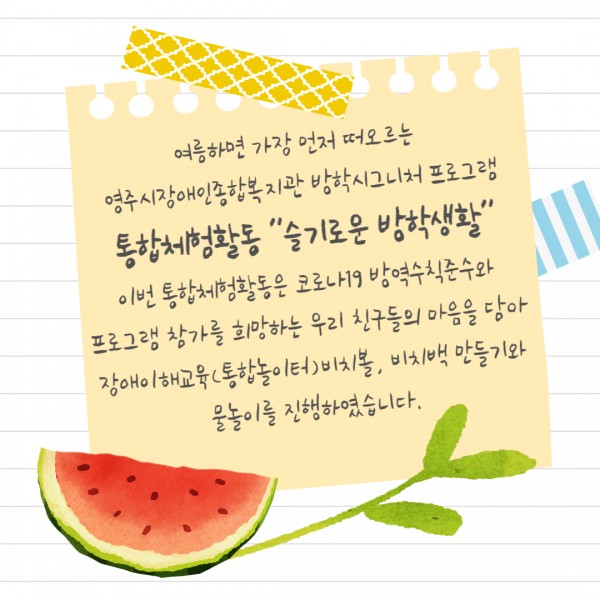 여름하면 가장 먼저 떠오르는
영주시장애인종합복지관 방학시그니처 프로그램
통합체험활동 "슬기로운 방학생활"
이번 통합체험활동은 코로나19 방역수칙준수와
프로그램 참가를 희망하는 우리 친구들의 마음을 담아
장애이해교육(통합놀이터)비치볼, 비치백 만들기와
물놀이를 진행하였습니다.